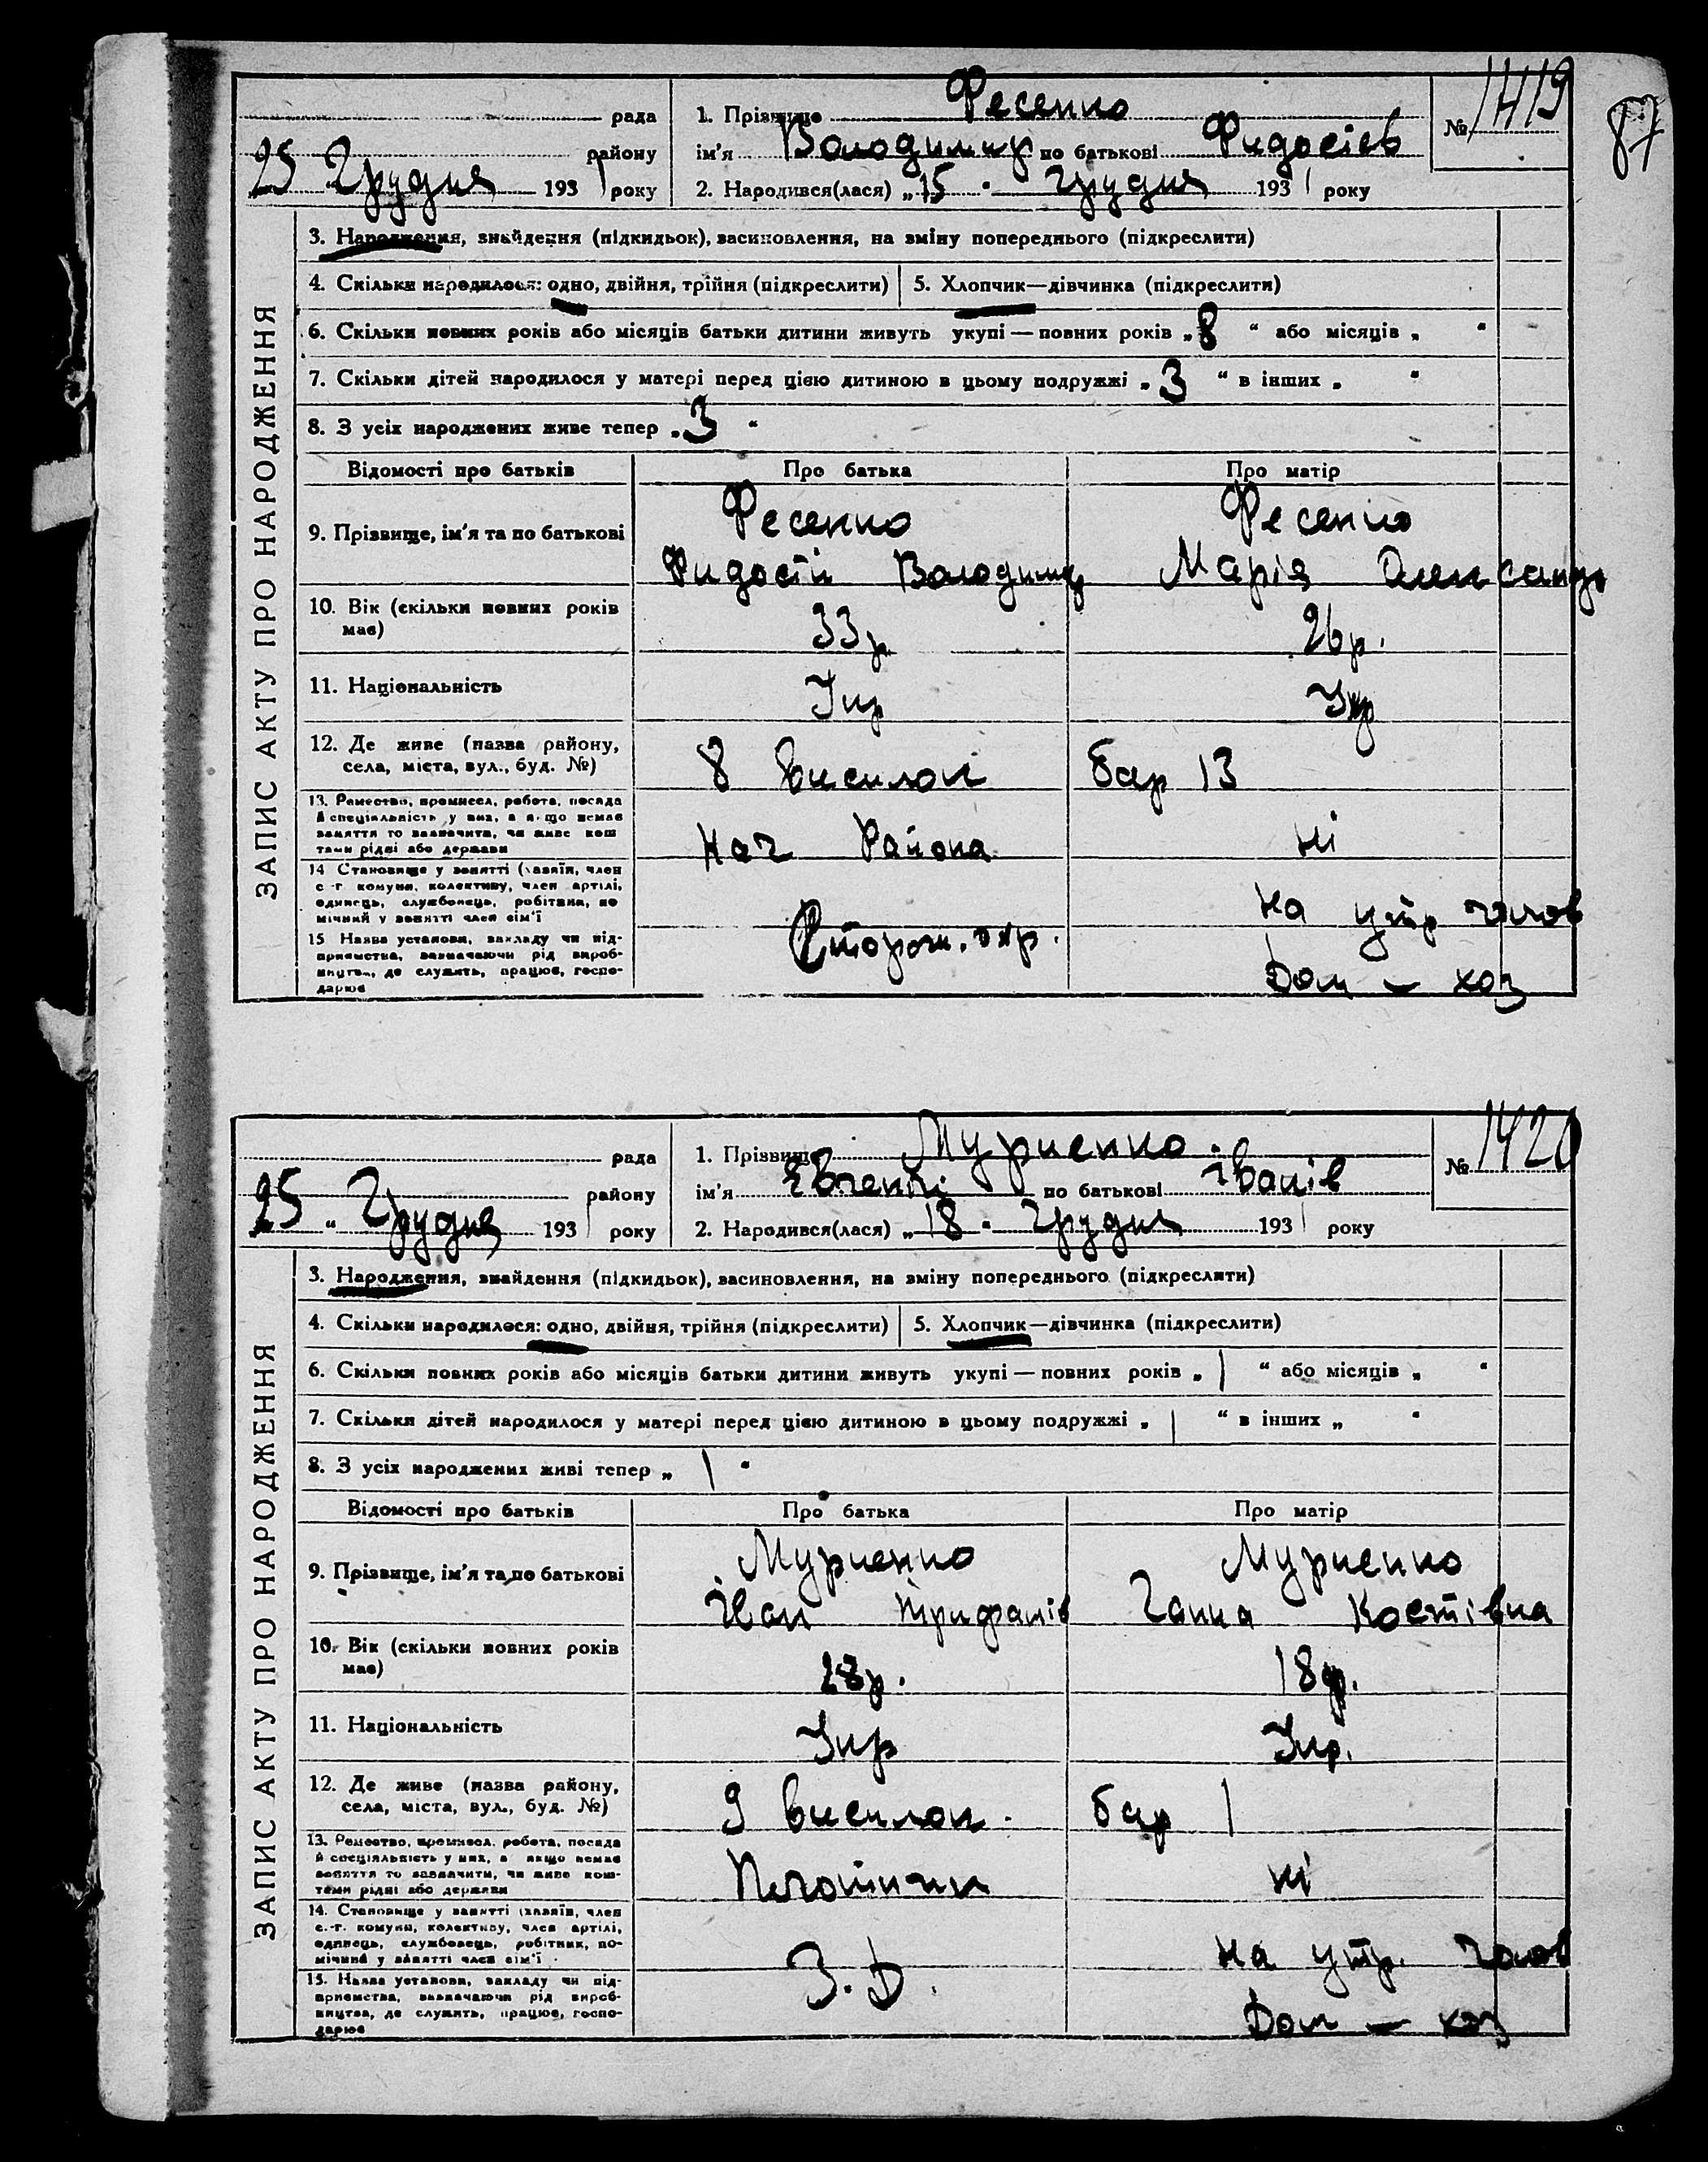 87
рада
1. Прізвище Фесенко
№ 1419
району
ім'я Володимир по батькові Фидосіев
25 Грудня 1931 року
2. Народився(лася) „15" Грудня 1931 року
ЗАПИС АКТУ ПРО НАРОДЖЕННЯ
3. Народження, знайдення (підкидьок), засиновлення, на зміну попереднього (підкреслити)
4. Скільки народилося: одно, двійня, трійня (підкреслити) 5. Хлопчик—дівчинка (підкреслити)
6. Скільки повних років або місяців батьки дитини живуть укупі — повних років „8" або місяців „ "
7. Скільки дітей народилося у матері перед цією дитиною в цьому подружжі „3" в інших „ "
8. З усіх народжених живе тепер „3"
Відомості про батьків Про батька Про матір
9. Прізвище, ім'я та по батькові
Фесенко Фесенко
Фидосій Володимир Марія Олександр
10. Вік (скільки повних років має) 33р. 26р.
11. Національність Укр Укр
12. Де живе (назва району, села, міста, вул., буд. №)
8 висилок бар 13
13. Ремество, промисел, робота, посада
й спеціяльність у них, а якщо немає
заняття то зазначити, чи живе кош
тами рідні або держави
Нач Района Ні
14 Становище у занятті (хазяїн, член
с.-г. комуни, колективу, член артілі,
одинець, службовець, робітник, по
мічний у занятті член сім'ї
на утр голов
15 Назва установи, закладу чи під-
приємства, зазначаючи рід вироб-
ництва, де служить, працює, госпо-
дарює
Сторож. охр. Дом — хоз
рада
1. Прізвище Муриенко.
№ 1420
району
ім'я Євгеній по батькові Іванів
25 „ Грудня 1931 року
2. Народився(лася) „18" Грудня 1931 року
ЗАПИС АКТУ ПРО НАРОДЖЕННЯ
3. Народження, знайдення (підкидьок), засиновлення, на зміну попереднього (підкреслити)
4. Скільки народилося: одно, двійня, трійня (підкреслити) 5. Хлопчик—дівчинка (підкреслити)
6. Скільки повних років або місяців батьки дитини живуть укупі — повних років „1" або місяців „ "
7. Скільки дітей народилося у матері перед цією дитиною в цьому подружжі „1" в інших „ "
8. З усіх народжених живі тепер „1"
Відомості про батьків Про батька Про матір
9. Прізвище, ім'я та по батькові
Муриенко Муриенко
Іван Трифанів Ганна Костівна
10. Вік (скільки повних років має) 28р. 18р.
11. Національність Укр Укр.
12. Де живе (назва району, села, міста, вул., буд. №)
9 висилок. бар 1
13. Ремество, промисел, робота, посада
й спеціяльність у них, а якщо немає
заняття то зазначити, чи живе кош-
тами рідні або держави
ні
14. Становище у занятті (хазяїн, член
с.-г. комуни, колективу, член артілі,
одинець, службовець, робітник, по-
мічний у занятті член сім'ї
З.Д. на утр. голов
15. Назва установи, закладу чи під-
приємства, зазначаючи рід вироб-
ництва, де служить, працює, госпо-
дарює
Дом — хоз